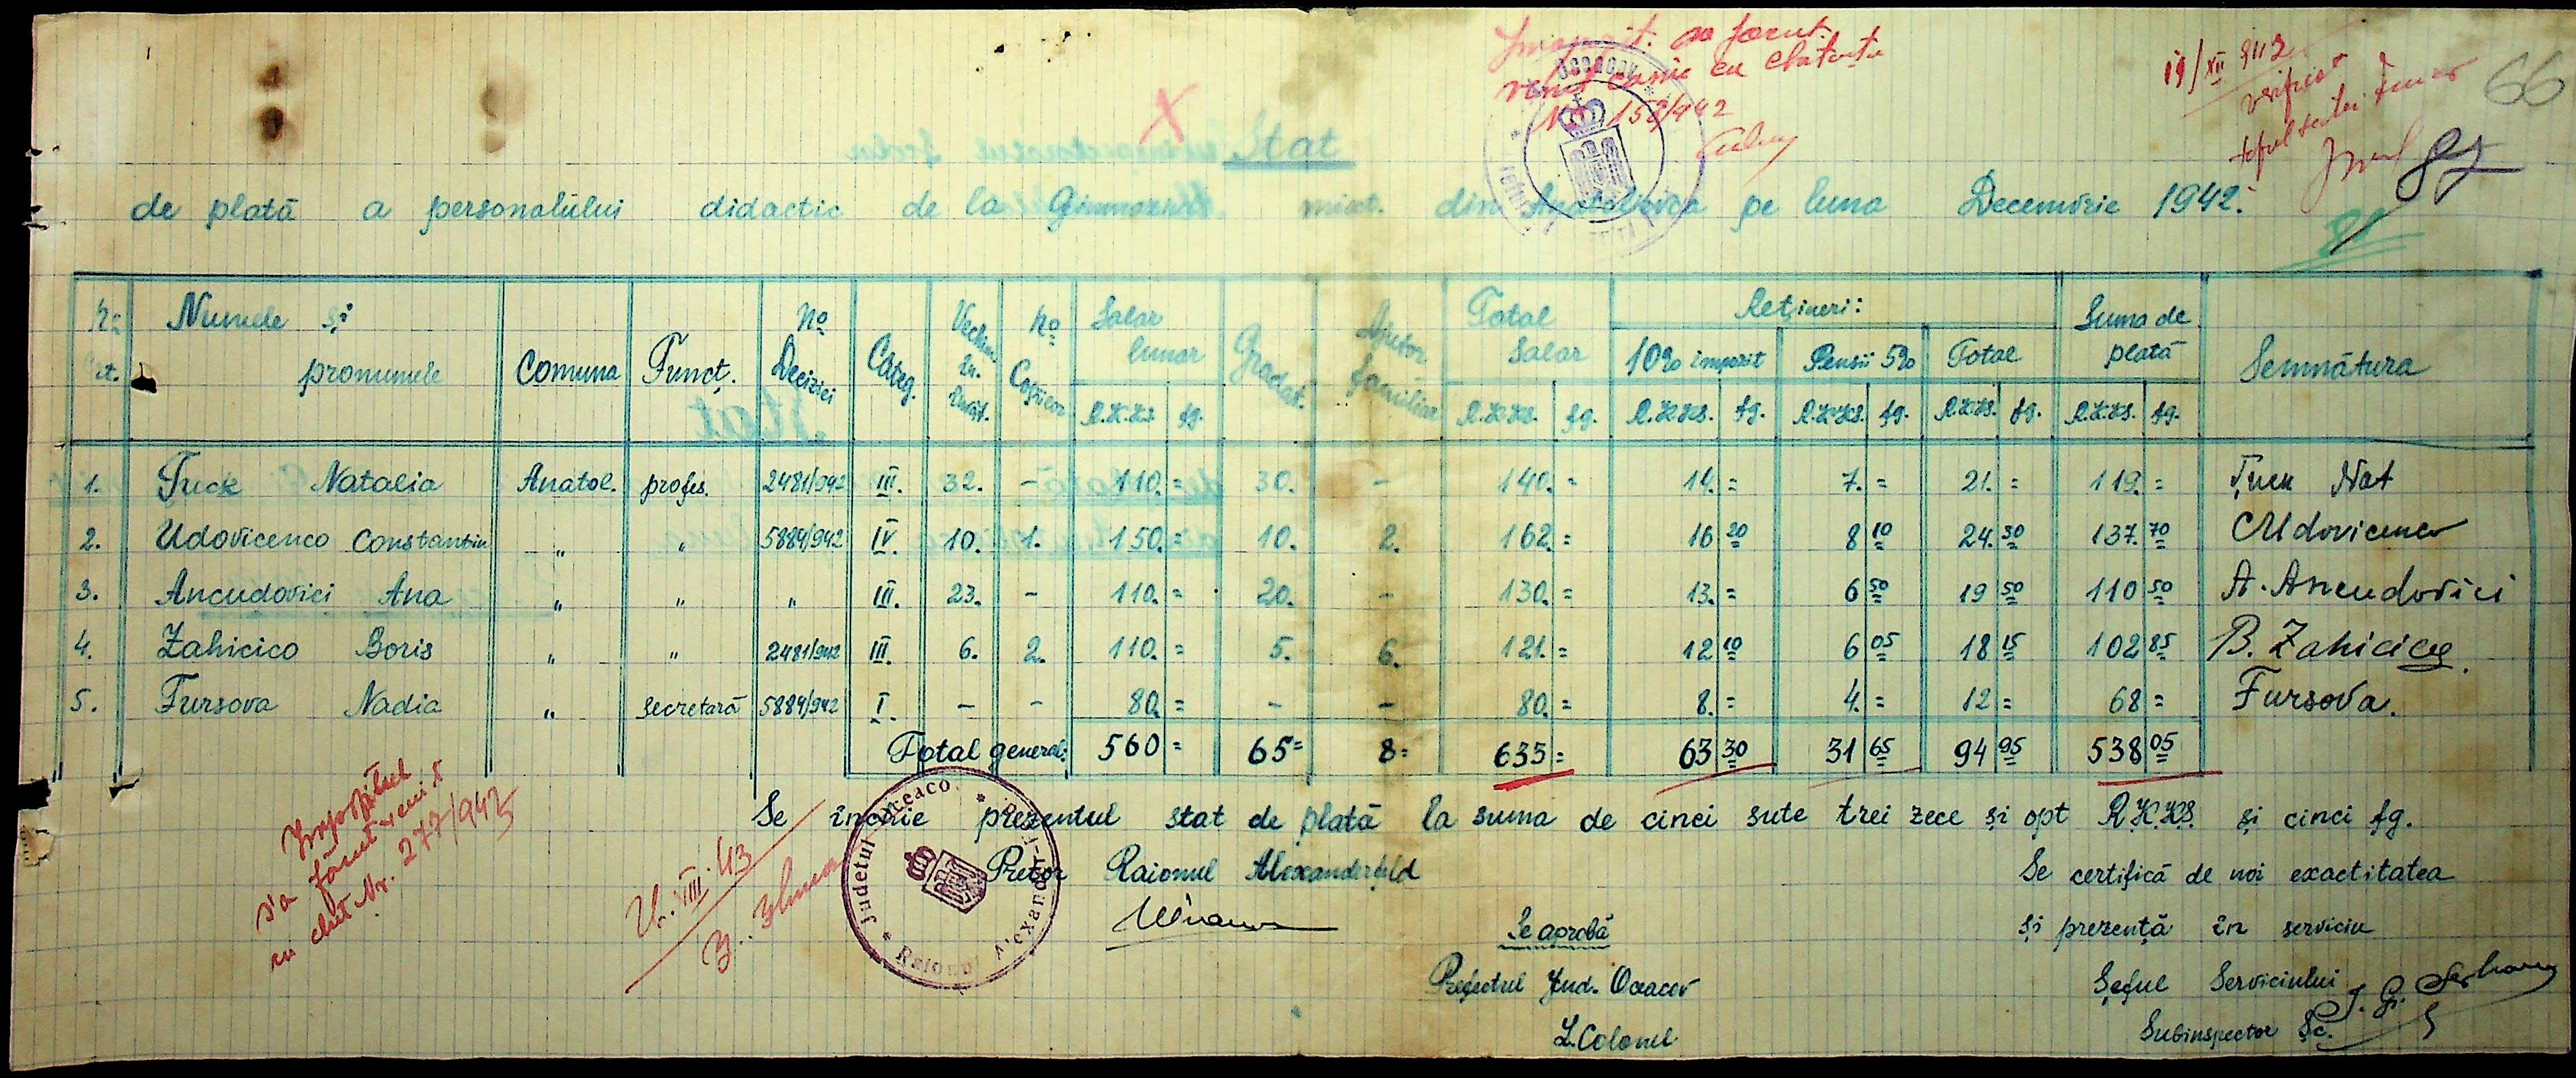 66
19/XII 942
verificat
Nr. 158/942
X
Stat
87
de plată a personalului didactic de la Gimnaziul mixt. din Anatolievca pe luna Decemvrie 1942.
Nr. Crt. Numele și pronumele Comuna Funcț. No Deciziei Categ. Vechim. în învăț. No Copiilor Salar lunar Gradat. Ajutor familiar Total Salar Rețineri: Suma de plată Semnătura
10% impozit Pensii 5% Total
R.K.KS. fg. R.K.KS. fg. R.K.KS. fg. R.K.KS. fg. R.K.KS. fg. R.K.KS. fg.
1. Țuck Natalia Anatol. profes. 2481/942 III. 32. - 110. = 30. - 140. = 14. = 7. = 21. = 119. = Țuck Nat
2. Udovicenco Constantin " " 5884/942 IV. 10. 1. 150. = 10. 2. 162. = 16 20 8 10 24. 30 137. 70 CUdovicenco
3. Ancudovici Ana " " " III. 23. - 110. = 20. - 130. = 13. = 6 50 19 50 110 50 A. Ancudovici
4. Zahicico Boris " " 2481/942 III. 6. 2. 110. = 5. 6. 121. = 12 10 6 05 18 15 102 85 B. Zahicico
5. Fursova Nadia " secretară 5884/942 I. - - 80. = - - 80. = 8. = 4. = 12 = 68 = Fursova.
Total general: 560 = 65 = 8 = 633 = 63 30 31 65 94 95 538 05
Se închie prezentul stat de plată la suma de cinci sute trei zece și opt R.K.KS. și cinci fg.
Impozitul
s'a făcut venit
cu chit Nr. 277/943
VIII. 43
Judetul Oceacov * Raionul Alexandrfeld *
Pretor Raionul Alexanderfeld
Se aprobă
Prefectul Jud. Oceacov
L. Colonel
Se certifică de noi exactitatea
și prezență în serviciu
Șeful Serviciului
Subinspector Șc.